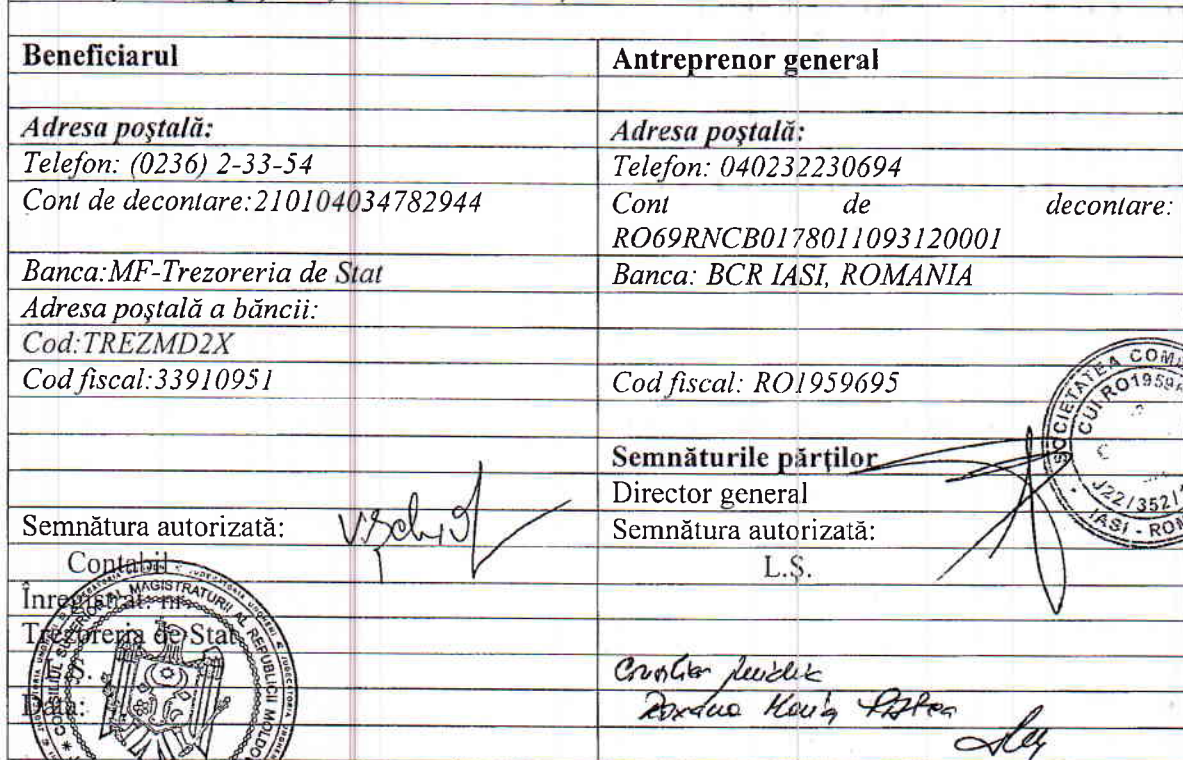 Beneficiarul
Antreprenor general
Adresa poştală:
Adresa poştală:
Telefon: (0236) 2-33-54
Telefon: 040232230694
Cont de decontare:210104034782944
Cont de decontare:
RO69RNCB0178011093120001
Banca:MF-Trezoreria de Stat
Banca: BCR IASI, ROMANIA
Adresa poştală a băncii:
Cod:TREZMD2X
Cod fiscal:33910951
Cod fiscal: RO1959695
Semnăturile părţilor
Director general
Semnătura autorizată:
Semnătura autorizată:
Contabil
L.Ş.
Înregistrat: nr.
Trezoreria de Stat
Data:
SOCIETATEA COM
CUI-RO19596
J22/352/
IASI - ROM
CONSILIUL SUPERIOR AL MAGISTRATURII AL REPUBLICII MOLDOV